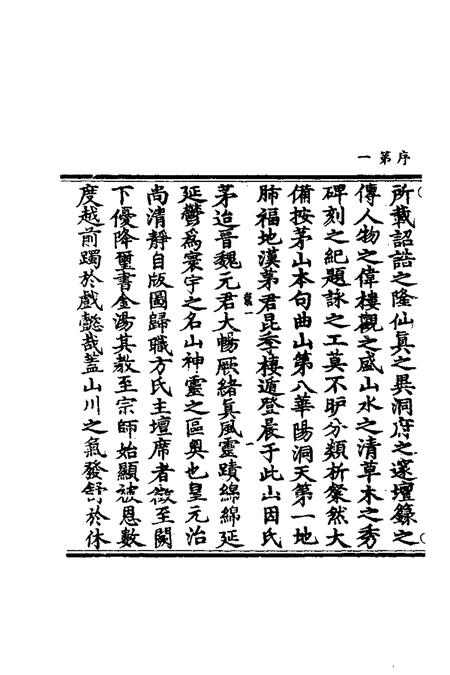 序第一
所載詔誥之隆仙真之異洞府之邃壇籙之
傳人物之偉樓觀之盛山水之清草木之秀
碑刻之紀題詠之工莫不昈分類析粲然大
備按茅山本句曲山第八華陽洞天第一地
肺福地漢茅君昆季棲遁登晨于此山因氏
茅迨晉魏元君大暢厥緒真風靈蹟綿綿延
延鬱為寰宇之名山神靈之區奧也皇元治
尚清靜自版圖歸職方氏主壇席者徵至闕
下優降璽書金湯其教至宗師始顯被恩數
度越前躅於戲懿哉蓋山川之氣發舒於休